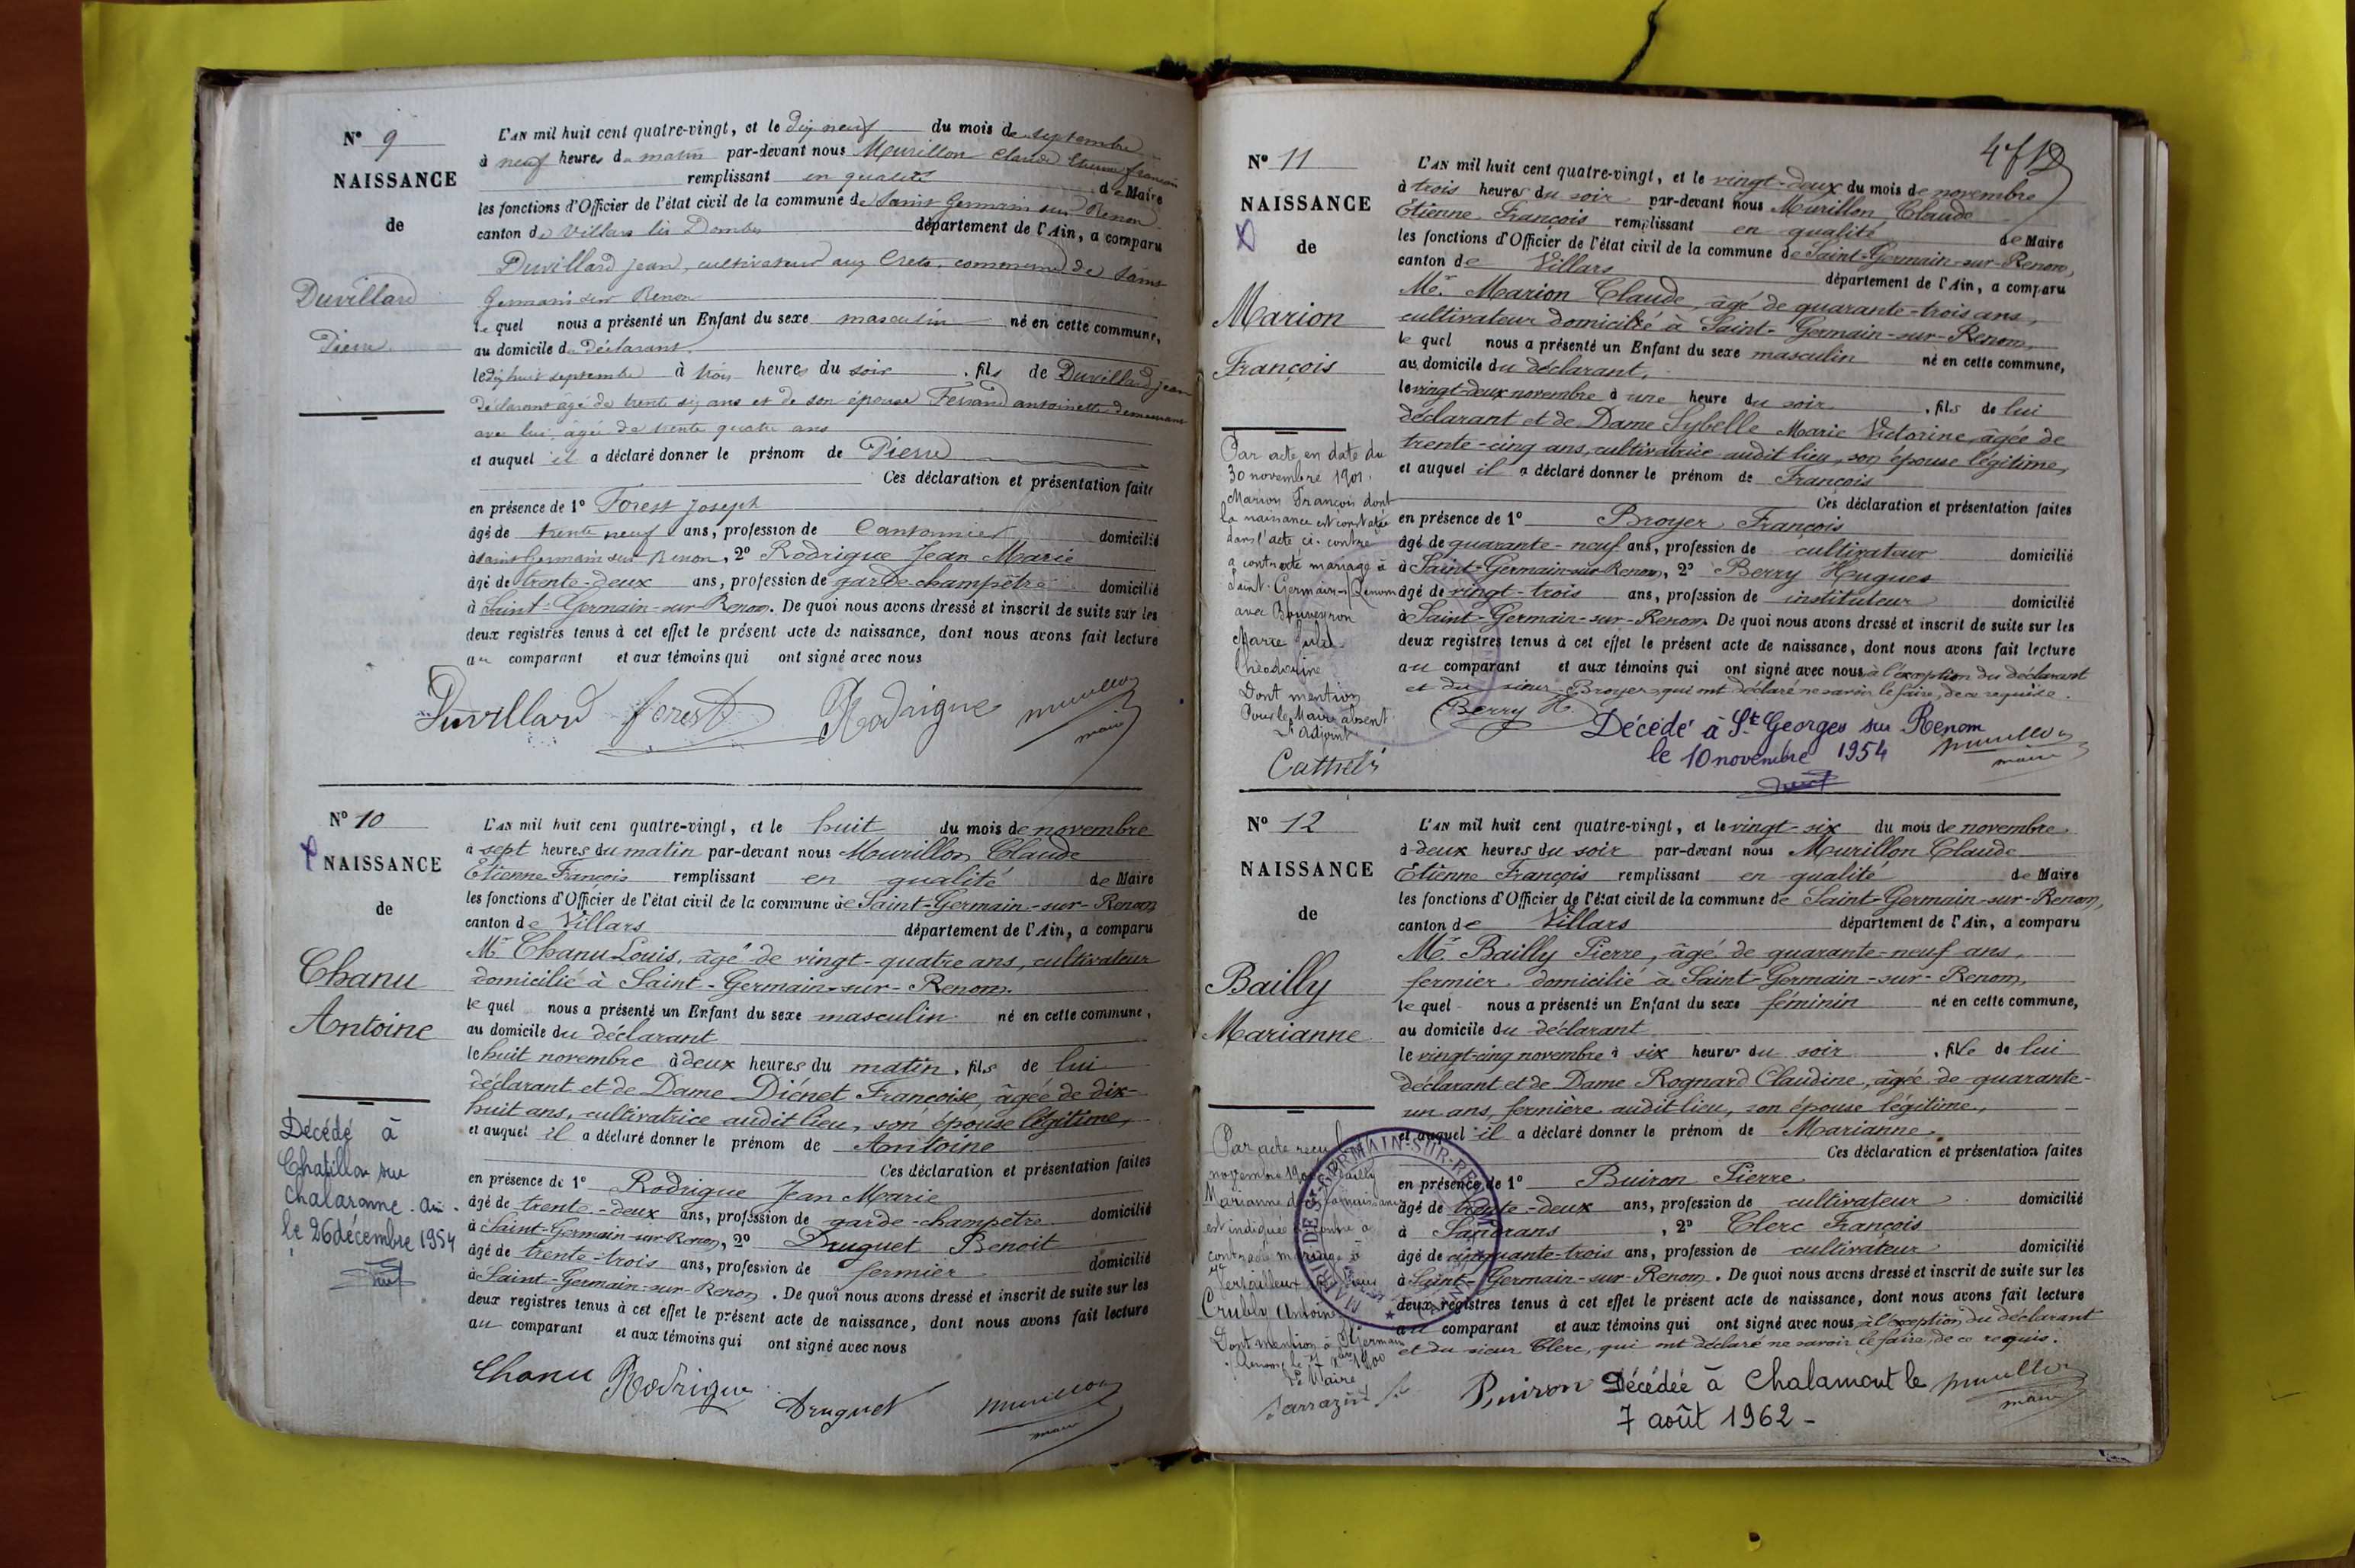 N° 9
NAISSANCE
de
Duvillard
Pierre
L'AN mil huit cent quatre-vingt, et le dix neuf du mois de septembre
à neuf heures du matin par-devant nous Murillon Claude Etienne françois
remplissant en qualité de Maire
les fonctions d'Officier de l'état civil de la commune de Saint Germain sur Renon
canton de Villars les Dombes département de l'Ain, a comparu
Duvillard Jean, cultivateur aux Crets, commune de Saint
Germain sur Renon
lequel nous a présenté un Enfant du sexe masculin né en cette commune,
au domicile du déclarant
le dix huit septembre à trois heures du soir, fils de Duvillard Jean
déclarant âgé de trente six ans et de son épouse Ferrand antoinette demeurant
avec lui, âgée de trente quatre ans
et auquel il a déclaré donner le prénom de Pierre
Ces déclaration et présentation faites
en présence de 1° Forest Joseph
âgé de trente neuf ans, profession de Cantonnier domicilié
à Saint Germain sur Renon, 2° Rodrigue Jean Marie
âgé de trente-deux ans, profession de garde-champêtre domicilié
à Saint-Germain-sur-Renon. De quoi nous avons dressé et inscrit de suite sur les
deux registres tenus à cet effet le présent acte de naissance, dont nous avons fait lecture
au comparant et aux témoins qui ont signé avec nous
Duvillard forest Rodrigue murillon
maire
N° 10
NAISSANCE
de
Chanu
Antoine
Décédé à
Chatillon sur
Chalaronne. Ain.
le 26 décembre 1954
L'AN mil huit cent quatre-vingt, et le huit du mois de novembre
à sept heures du matin par-devant nous Murillon Claude
Etienne François remplissant en qualité de Maire
les fonctions d'Officier de l'état civil de la commune de Saint-Germain-sur-Renon
canton de Villars département de l'Ain, a comparu
Mr Chanu Louis, âgé de vingt-quatre ans, cultivateur
domicilié à Saint-Germain-sur-Renon.
lequel nous a présenté un Enfant du sexe masculin né en cette commune,
au domicile du déclarant
le huit novembre à deux heures du matin, fils de lui
déclarant et de Dame Diénet Françoise, âgée de dix-
huit ans, cultivatrice audit lieu, son épouse légitime,
et auquel il a déclaré donner le prénom de Antoine
Ces déclaration et présentation faites
en présence de 1° Rodrigue Jean Marie
âgé de trente-deux ans, profession de garde-champêtre domicilié
à Saint-Germain-sur-Renon, 2° Druguet Benoit
âgé de trente-trois ans, profession de fermier domicilié
à Saint-Germain-sur-Renon. De quoi nous avons dressé et inscrit de suite sur les
deux registres tenus à cet effet le présent acte de naissance, dont nous avons fait lecture
au comparant et aux témoins qui ont signé avec nous
Chanu Rodrigue Druguet murillon
maire
N° 11
NAISSANCE
de
Marion
François
Par acte en date du
30 novembre 1901.
Marion François dont
la naissance est constatée
dans l'acte ci-contre
a contracté mariage à
Saint-Germain-s/Renom
avec Bouveyron
Marie
Dont mention
Pour le Maire absent
L'adjoint
L'AN mil huit cent quatre-vingt, et le vingt-deux du mois de novembre
à trois heures du soir par-devant nous Murillon Claude
Etienne François remplissant en qualité de Maire
les fonctions d'Officier de l'état civil de la commune de Saint-Germain-sur-Renon,
canton de Villars département de l'Ain, a comparu
Mr. Marion Claude, âgé de quarante-trois ans,
cultivateur domicilié à Saint-Germain-sur-Renon,
lequel nous a présenté un Enfant du sexe masculin né en cette commune,
au domicile du déclarant,
le vingt-deux novembre à une heure du soir, fils de lui
déclarant et de Dame Sybelle Marie Victorine, âgée de
trente-cinq ans, cultivatrice audit lieu, son épouse légitime,
et auquel il a déclaré donner le prénom de François
Ces déclaration et présentation faites
en présence de 1° Broyer François
âgé de quarante-neuf ans, profession de cultivateur domicilié
à Saint-Germain-sur-Renon, 2° Berry Hugues
âgé de vingt-trois ans, profession de instituteur domicilié
à Saint-Germain-sur-Renon. De quoi nous avons dressé et inscrit de suite sur les
deux registres tenus à cet effet le présent acte de naissance, dont nous avons fait lecture
au comparant et aux témoins qui ont signé avec nous, à l'exception du déclarant
et du sieur Broyer, qui ont déclaré ne savoir le faire, de ce requise.
Berry H.
Décédé à St Georges sur Renom
le 10 novembre 1954
murillon
maire
N° 12
NAISSANCE
de
Bailly
Marianne
Par acte reçu
novembre 1900 Bailly
Marianne dont la naissance
est indiquée ci-contre a
contracté mariage à
Versailleux
Antoine
Dont mention à St Germain
Le Maire
Sarrazin
MAIRIE DE ST-GERMAIN-SUR-RENOM
L'AN mil huit cent quatre-vingt, et le vingt-six du mois de novembre
à deux heures du soir par-devant nous Murillon Claude
Etienne François remplissant en qualité de Maire
les fonctions d'Officier de l'état civil de la commune de Saint-Germain-sur-Renon,
canton de Villars département de l'Ain, a comparu
Mr. Bailly Pierre, âgé de quarante-neuf ans,
fermier domicilié à Saint-Germain-sur-Renon,
lequel nous a présenté un Enfant du sexe féminin né en cette commune,
au domicile du déclarant
le vingt-cinq novembre à six heures du soir, fille de lui
déclarant et de Dame Rognard Claudine, âgée de quarante-
un ans, fermière audit lieu, son épouse légitime,
et auquel il a déclaré donner le prénom de Marianne.
Ces déclaration et présentation faites
en présence de 1° Buiron Pierre
âgé de trente-deux ans, profession de cultivateur domicilié
à Sandrans, 2° Clerc François
âgé de cinquante-trois ans, profession de cultivateur domicilié
à Saint-Germain-sur-Renon. De quoi nous avons dressé et inscrit de suite sur les
deux registres tenus à cet effet le présent acte de naissance, dont nous avons fait lecture
au comparant et aux témoins qui ont signé avec nous, à l'exception du déclarant
et du sieur Clerc, qui ont déclaré ne savoir le faire, de ce requis.
Buiron Décédée à Chalamont le murillon
7 août 1962 - maire